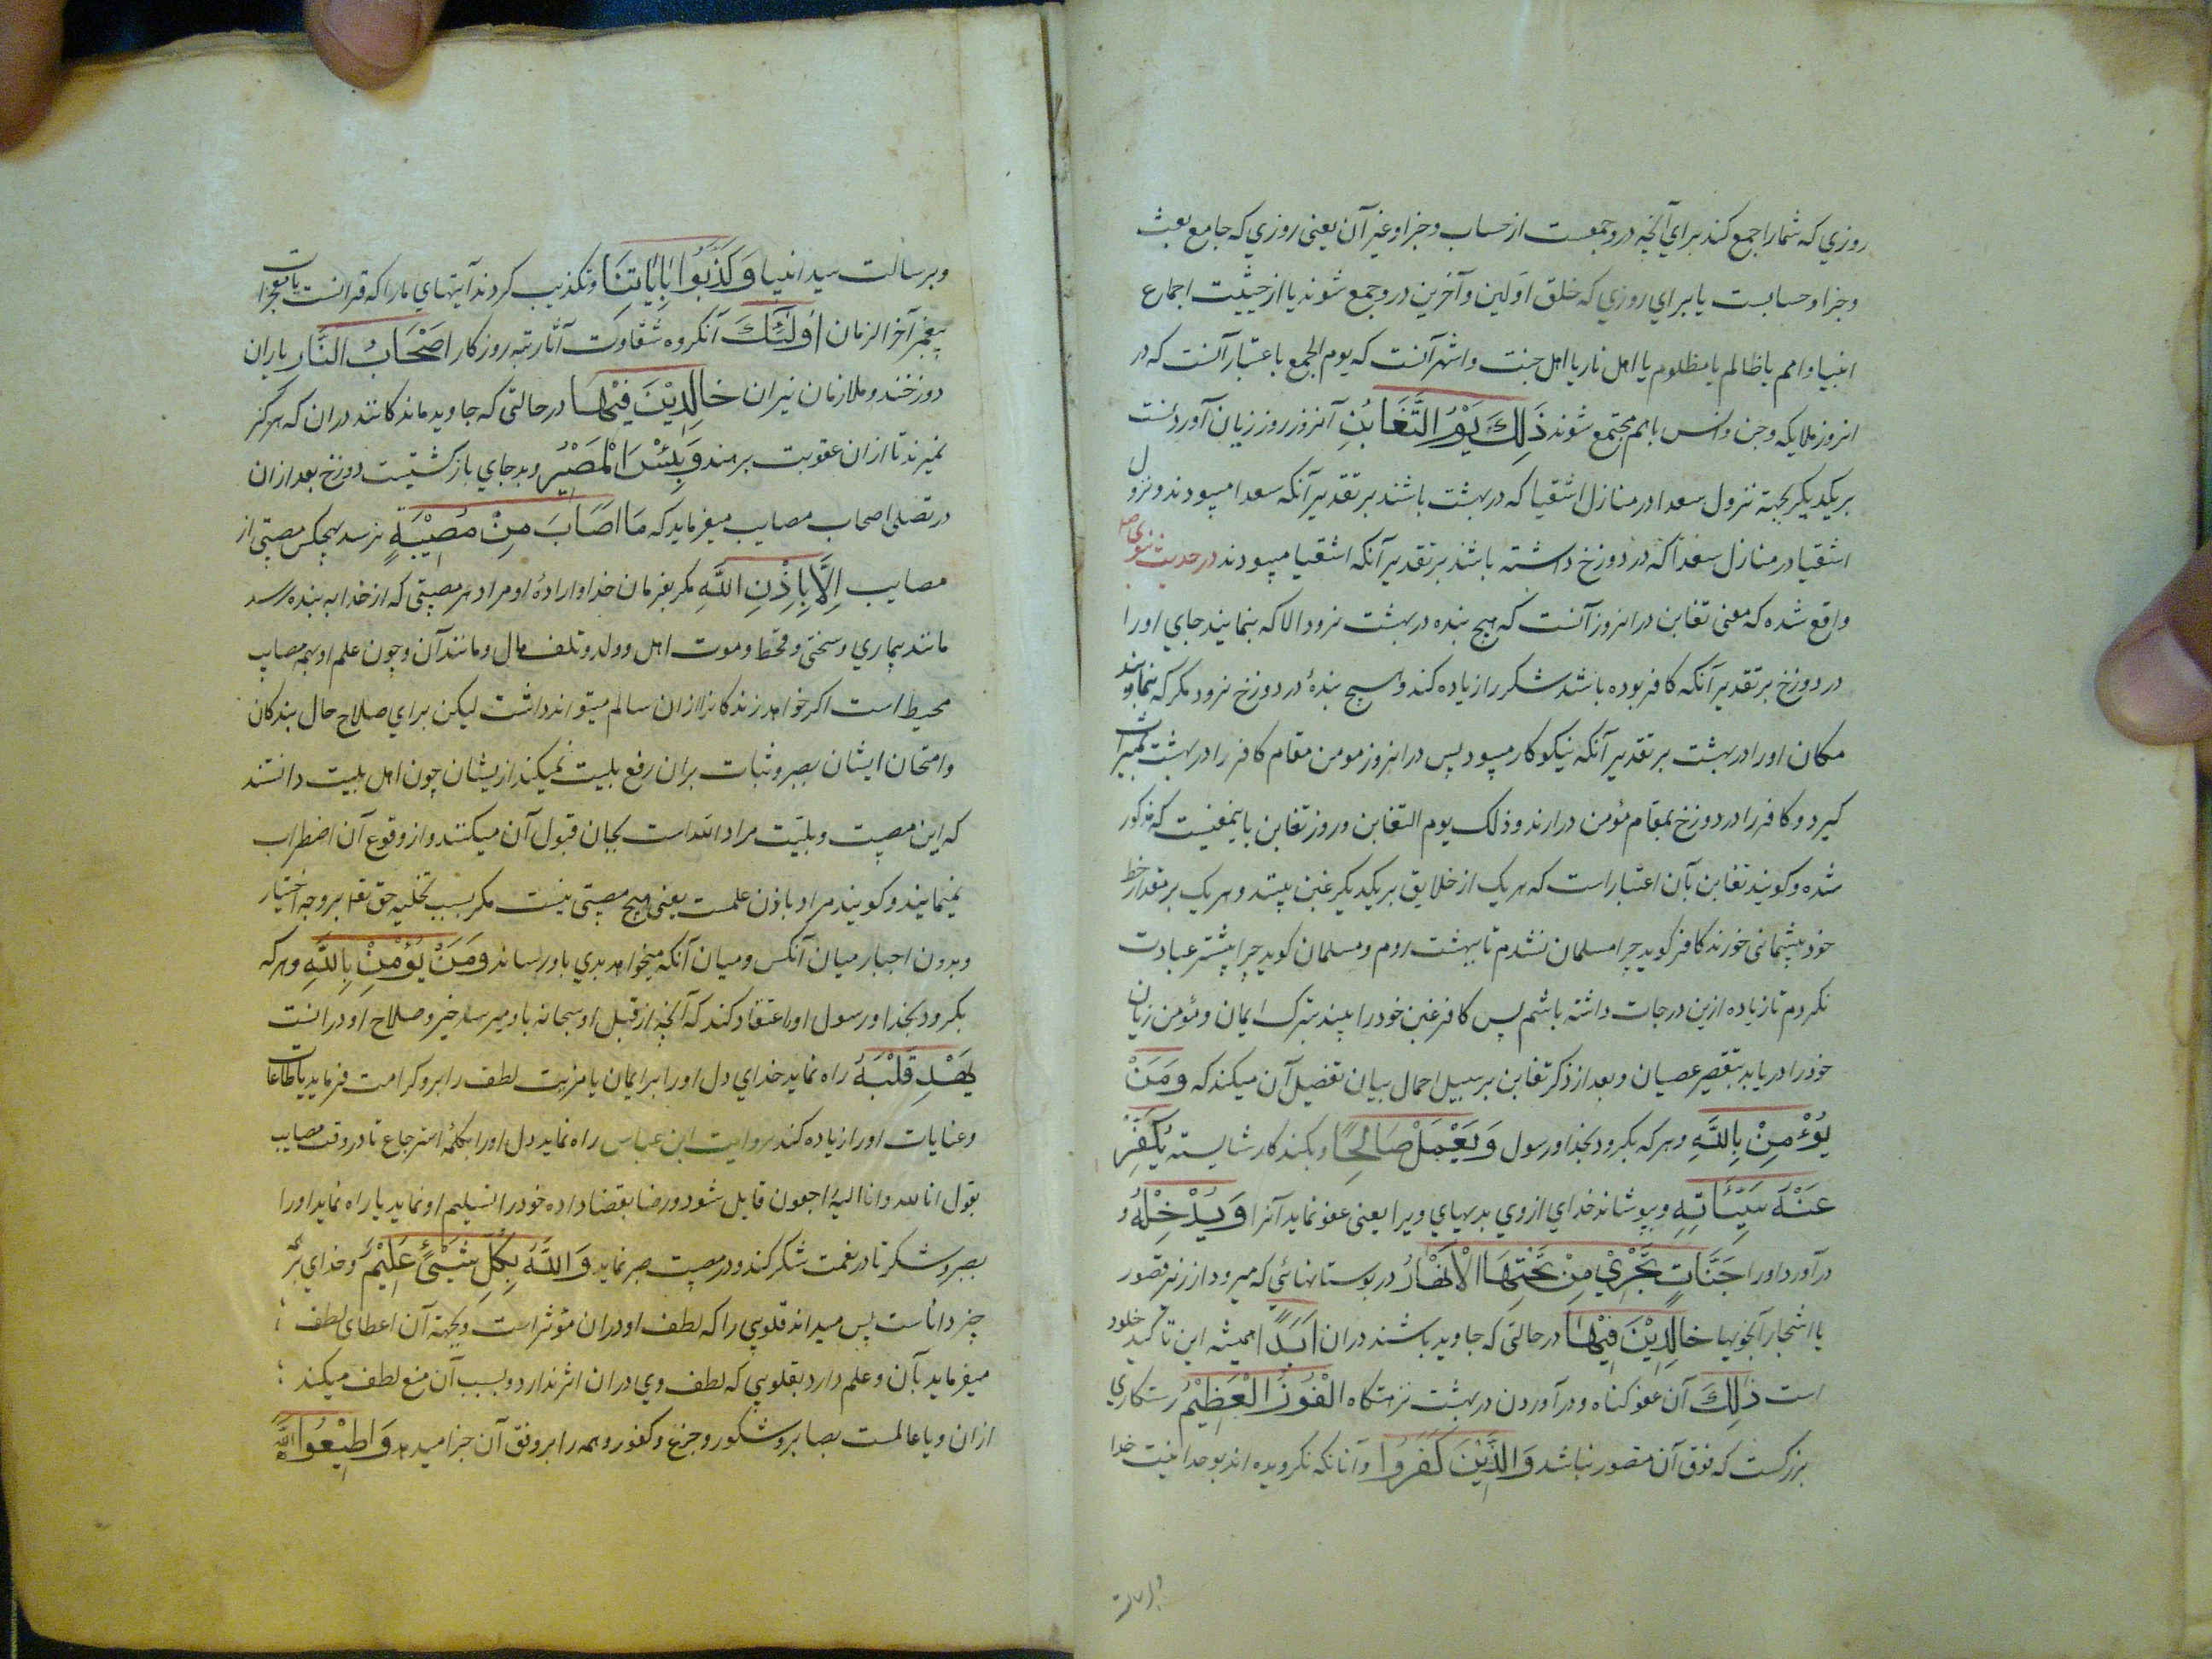 روزي كه شما را جمع كند براي آنچه دروجمعست از حساب وجزا وغير آن يعنى روزي كه جامع بعث
وجزا وحسابست يا براي روزي كه خلق اولين وآخرين در وجمع شوند يا از حيثيت اجماع
انبيا وامم يا ظالم يا مظلوم يا اهل نار يا اهل جنت واشهر آنست كه يوم الجمع باعتبار آنست كه در
انروز ملايكه وجن وانس باهم مجتمع شوند ذَلِكَ يَوْمُ التَّغَابُنِ آنروز روز زيان آوردنست
بريكديكر بجهة نزول سعدا در منازل اشقيا كه در بهشت باشند بر تقدير آنكه سعدا ميبودند ونزول
اشقيا در منازل سعدا كه در دوزخ داشته باشند بر تقدير آنكه اشقيا ميبودند در حديث نبوي ص
واقع شده كه معنى تغابن در انروز آنست كه هيچ بنده در بهشت نرود الا كه بنمايند جاي او را
در دوزخ بر تقدير آنكه كافر بوده باشد شكر را زياده كند وهيچ بندۀ در دوزخ نرود مكر كه بنمايند
مكان او را در بهشت بر تقدير آنكه نيكوكار ميبود پس در انروز مومن مقام كافر را در بهشت بميراث
كيرد و كافر را در دوزخ بمقام مؤمن درارند وذلك يوم التغابن وروز تغابن باينمعنيست كه مذكور
شده وكويند تغابن بآن اعتبار است كه هريك از خلايق بريكديكر غبن بينند وهريك بر مقدار حظ
خود پشيمانى خورند كافر كويد چرا مسلمان نشدم تا ببهشت روم ومسلمان كويد چرا پيشتر عبادت
نكردم تا زياده ازين درجات داشته باشم پس كافر غبن خود را بيند بترك ايمان ومؤمن زيان
خود را دريابد بتقصير عصيان وبعد از ذكر تغابن بر سبيل اجمال بيان تفصيل آن ميكند كه وَمَنْ
يُؤْمِنْ بِاللَّهِ وهركه بكرود بخدا ورسول وَيَعْمَلْ صَالِحًا وبكند كار شايسته يُكَفِّرْ
عَنْهُ سَيِّئَاتِهِ وبپوشاند خداي از وي بديهاي ويرا يعنى عفو نمايد آنرا وَيُدْخِلْهُ و
درآورد او را جَنَّاتٍ تَجْرِيْ مِنْ تَحْتِهَا الْأَنْهَارُ در بوستانهائي كه ميرود از زير قصور
يا اشجار آنجويها خَالِدِيْنَ فِيْهَا در حالتى كه جاويد باشند دران اَبَدًا هميشه اين تاكيد خلود
است ذَٰلِكَ آن عفو كناه ودرآوردن در بهشت نزهتكاه الْفَوْزُ الْعَظِيْمُ رستكاري
بزركست كه فوق آن متصور نباشد وَالَّذِيْنَ كَفَرُوا وآنانكه نكرويده اند بوحدانيت خدا
وبرسالت
وبرسالت سيد انبيا وَكَذَّبُوا بِاٰيَاتِنَا وتكذيب كردند آيتهاي ما را كه قرانست يا معجزات
پيغمبر آخر الزمان اُولَٰئِكَ آنكروه شقاوت آثار تبه روزكار اَصْحَابُ النَّارِ ياران
دوزخند وملازمان نيران خَالِدِيْنَ فِيْهَا در حالتى كه جاويد ماندكانند دران كه هركز
نميرند تا ازان عقوبت برهند وَبِئْسَ الْمَصِيْرُ وبد جاي بازكشتيست دوزخ بعد ازان
در تسلى اصحاب مصايب ميفرمايد كه مَا اَصَابَ مِنْ مُصِيْبَةٍ نرسد بهيچكس مصيبتى از
مصايب اِلَّا بِاِذْنِ اللَّهِ مكر بفرمان خدا وارادۀ او مراد هر مصيبتى كه از خدا به بنده رسد
مانند بيماري وسختى وقحط وموت اهل وولد وتلف مال ومانند آن وچون علم او بهمه مصايب
محيط است اكر خواهد زندكانرا ازان سالم ميتواند داشت ليكن براي صلاح حال بندكان
وامتحان ايشان بصبر وثبات بران رفع بليت نميكند ازيشان چون اهل بليت دانستند
كه اين مصيبت وبليّت مراد الله است بجان قبول آن ميكنند واز وقوع آن اضطراب
نمينمايند وكويند مراد باذن علمست يعنى هيچ مصيبتى نيست مكر بسبب تخليه حق تعالى بر وجه اختيار
وبدون اجبار ميان آنكس وميان آنكه ميخواهد بدي باو رساند وَمَنْ يُؤْمِنْ بِاللَّهِ وهركه
بكرود بخدا ورسول او واعتقاد كند كه آنچه از قبل او سبحانه باو ميرسد خير وصلاح او درانست
يَهْدِ قَلْبَهُ راه نمايد خداي دل او را بر ايمان يا مزيت لطف را برو كرامت فرمايد يا طاعات
وعنايات او را زياده كند بروايت ابن عباس راه نمايد دل او را بكلمۀ استرجاع تا در وقت مصايب
بقول انا لله وانا اليه راجعون قايل شود ورضا بقضا داده خود را تسليم او نمايد يا راه نمايد او را
بصبر وشكر تا در نعمت شكر كند ودر مصيبت صبر نمايد وَاللَّهُ بِكُلِّ شَيْئٍ عَلِيْمٌ وخداي بهر
چيز داناست پس ميداند قلوبي را كه لطف او دران مؤثر است وبجهة آن اعطاى لطف
ميفرمايد بآن وعلم دارد بقلوبي كه لطف وي دران اثر ندارد وبسبب آن منع لطف ميكند
ازان ويا عالمست بصابر وشكور وجزع وكفور وهمه را بر وفق آن جزا ميدهد وَاَطِيْعُوا اللَّهَ